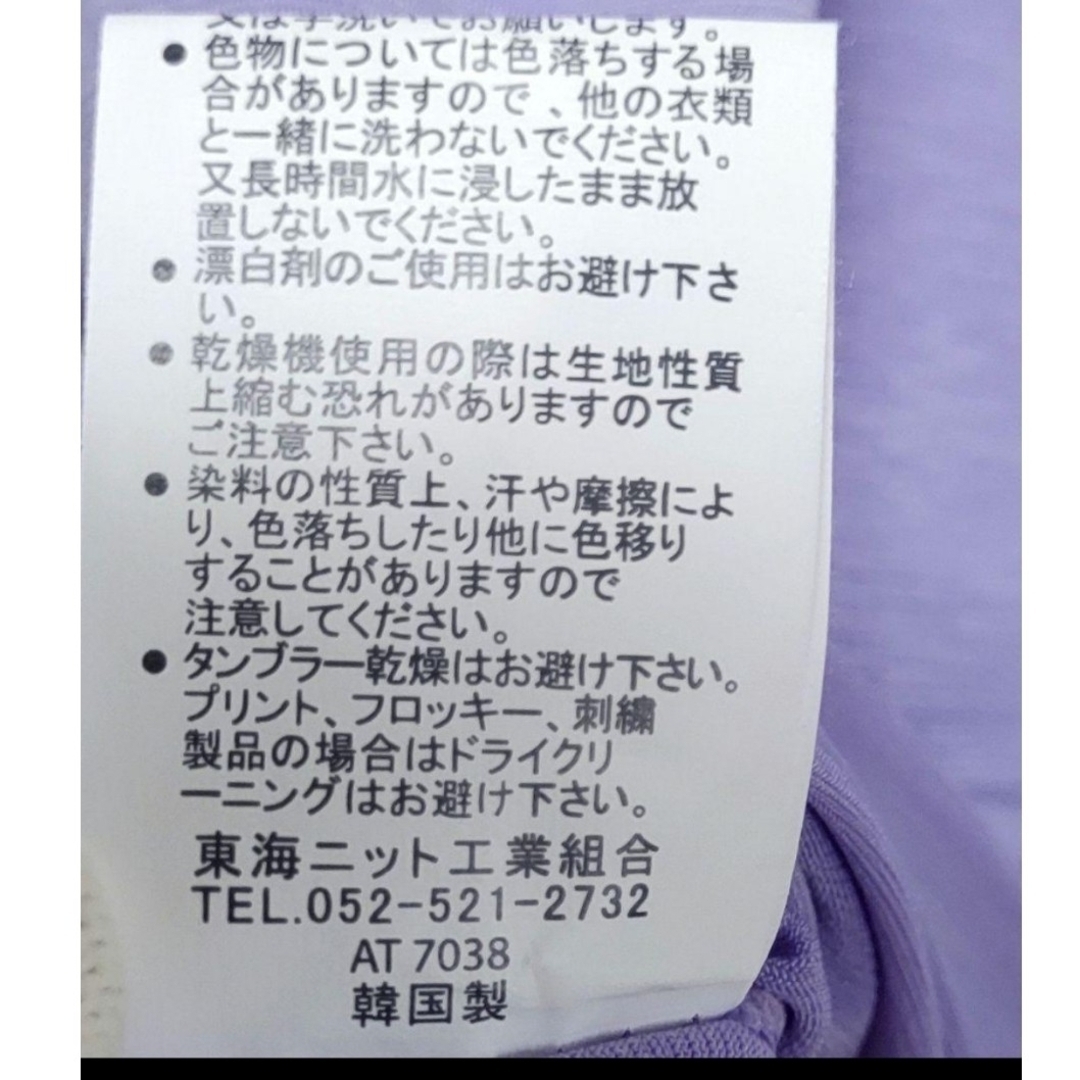 又は手洗いでお願いします。
● 色物については色落ちする場
合がありますので、他の衣類
と一緒に洗わないでください。
又長時間水に浸したまま放
置しないでください。
● 漂白剤のご使用はお避け下さ
い。
● 乾燥機使用の際は生地性質
上縮む恐れがありますので
ご注意下さい。
● 染料の性質上、汗や摩擦によ
り、色落ちしたり他に色移り
することがありますので
注意してください。
● タンブラー乾燥はお避け下さい。
プリント、フロッキー、刺繍
製品の場合はドライクリ
ーニングはお避け下さい。
東海ニット工業組合
TEL.052-521-2732
AT 7038
韓国製